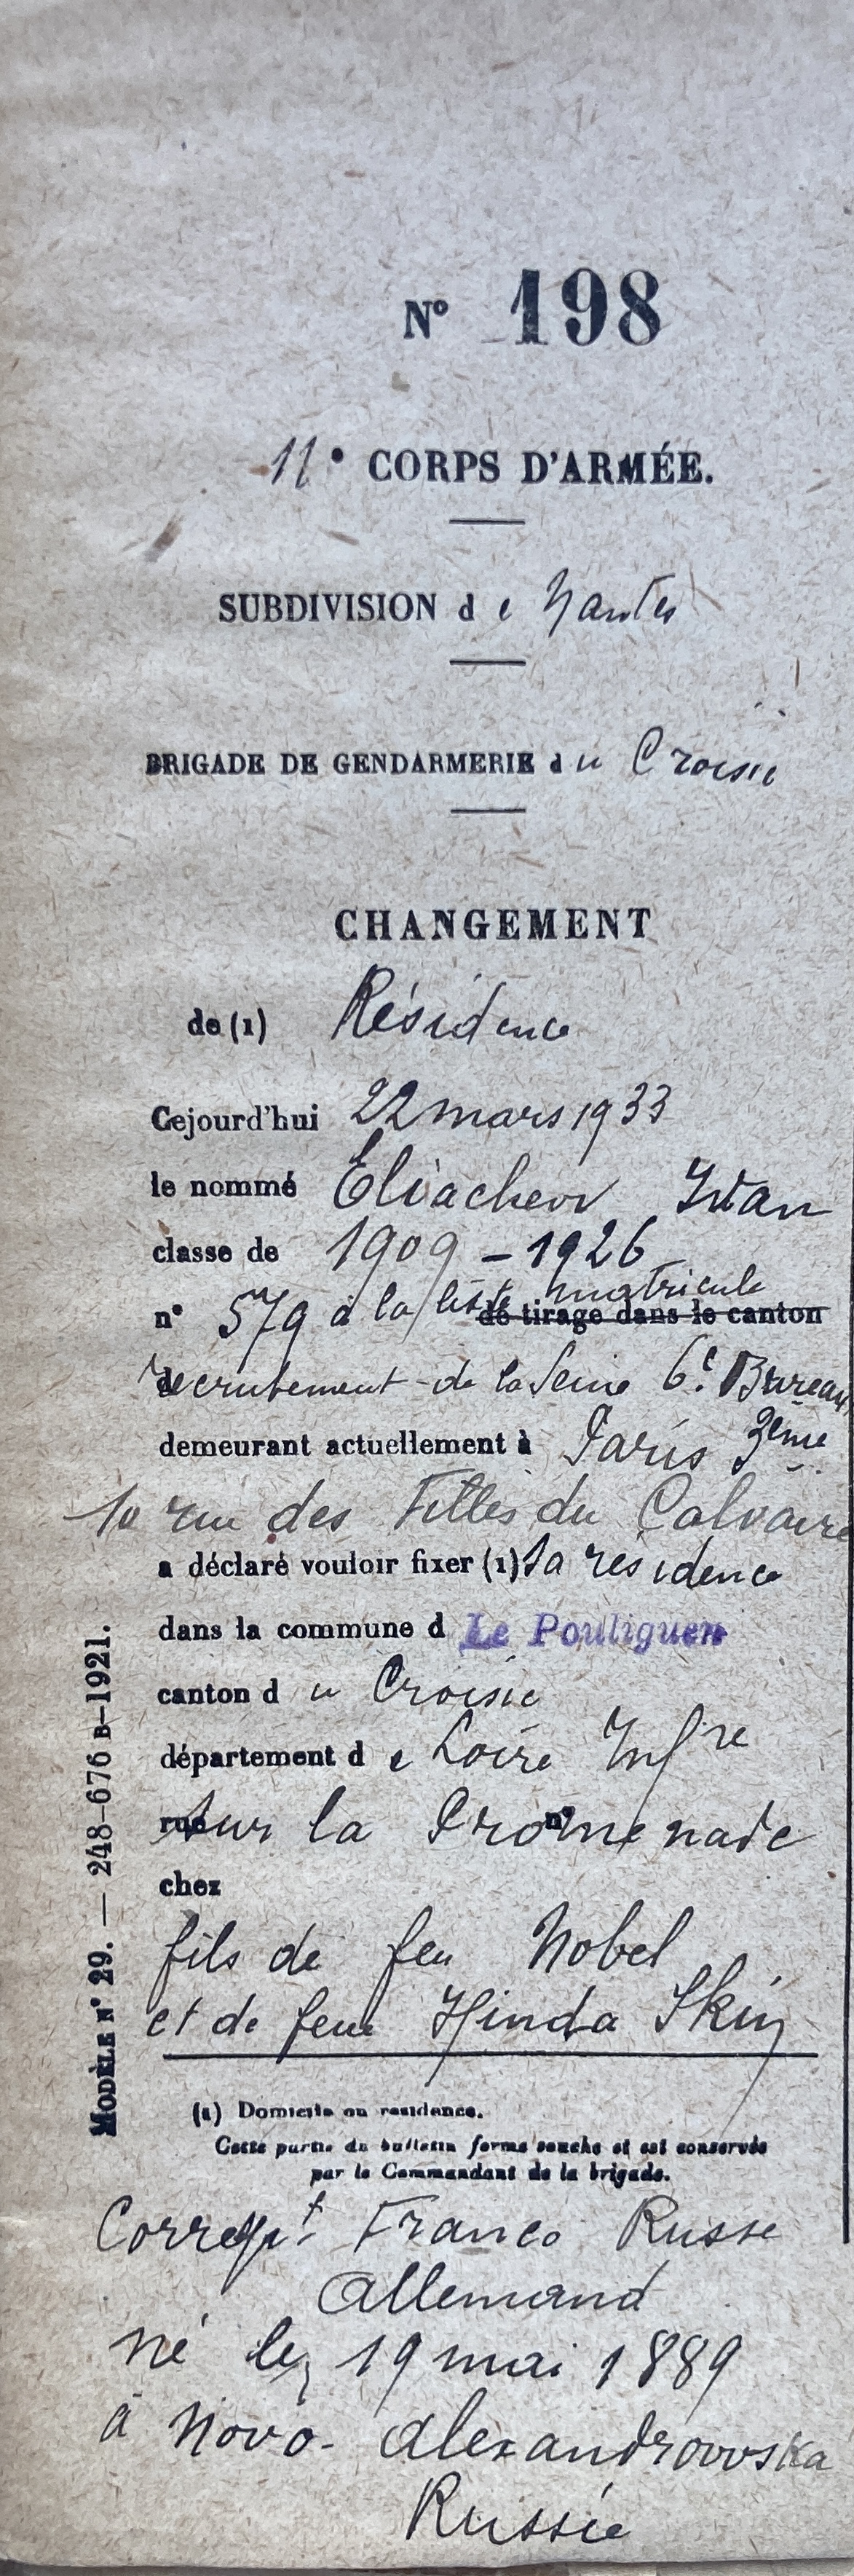 N° 198
11e CORPS D'ARMÉE.
SUBDIVISION de Nantes
BRIGADE DE GENDARMERIE du Croisic
CHANGEMENT
de (1) Résidence
Cejourd'hui 22 mars 1933
le nommé Eliacheov Ivan
classe de 1909 - 1926
n° 579 à la liste matricule de tirage dans le canton
de recrutement de la Seine 6e Bureau
demeurant actuellement à Paris 3ème
10 rue des Filles du Calvaire
a déclaré vouloir fixer (1) sa résidence
dans la commune d Le Pouliguen
canton du Croisic
département de Loire Infre
rue sur la Promenade n°
chez
fils de feu Nobel
et de feue Hinda Skin
(1) Domicile ou résidence.
Cette partie du bulletin forme souche et est conservée
par le Commandant de la brigade.
MODÈLE N° 29. — 248-676 B-1921.
Correspt Franco Russe
Allemand
né le 19 mai 1889
à Novo-Alexandrovska
Russie